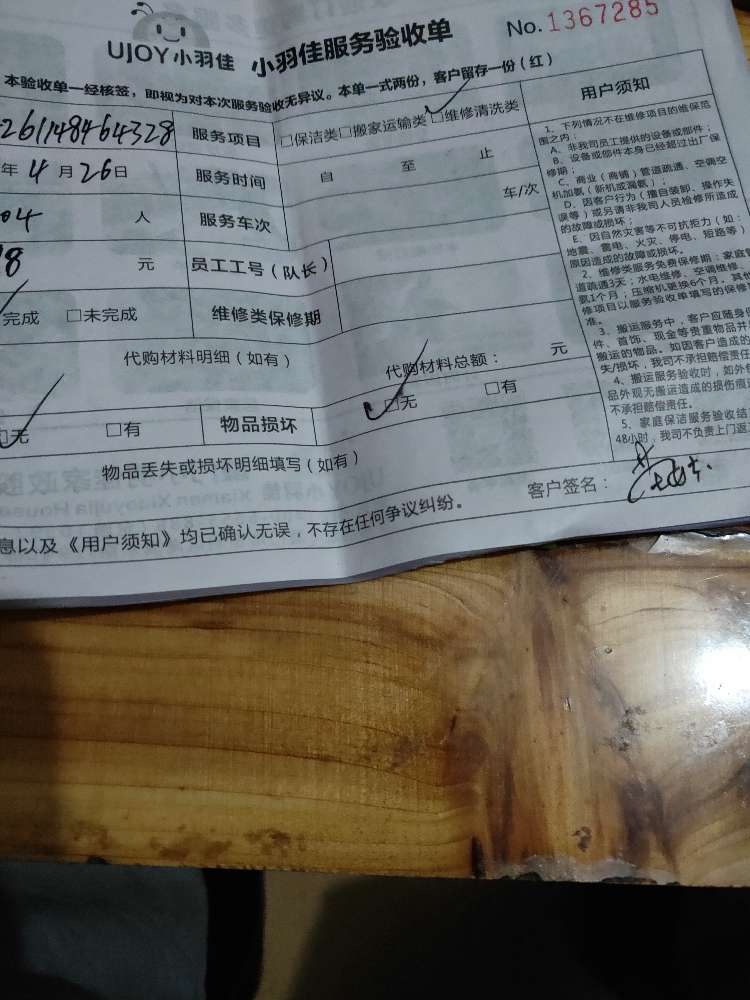 UJOY小羽佳 小羽佳服务验收单 No.1367285
本验收单一经核签，即视为对本次服务验收无异议。本单一式两份，客户留存一份（红）
261148464328 服务项目 □保洁类□搬家运输类□维修清洗类
年4月26日 服务时间 自 至 止
04 人 服务车次 车/次
8 元 员工工号（队长）
完成 □未完成 维修类保修期
代购材料明细（如有） 代购材料总额： 元
□无 □有 物品损坏 □无 □有
物品丢失或损坏明细填写（如有）
客户签名：
息以及《用户须知》均已确认无误，不存在任何争议纠纷。
用户须知
1、下列情况不在维修项目的维保范
围之内：
A、非我司员工提供的设备或部件；
B、设备或部件本身已经超过出厂保
修期；
C、商业（商铺）管道疏通、空调空
机加氨（新机或漏氨）；
D、因客户行为（擅自装卸、操作失
误等）或另请非我司人员检修所造成
的故障或损坏；
E、因自然灾害等不可抗拒力（如：
地震、雷电、火灾、停电、短路等）
原因造成的故障或损坏。
2、维修类服务免费保修期：家庭管
道疏通3天；水电维修、空调维修、
氨1个月；压缩机更换6个月。其他
修项目以服务验收单填写的保修
准。
3、搬运服务中，客户应随身保
件、首饰、现金等贵重物品并
搬运的物品。如因客户造成的
失/损坏，我司不承担赔偿责任
4、搬运服务验收时，如外包
品外观无搬运造成的损伤痕
不承担赔偿责任。
5、家庭保洁服务验收结
48小时，我司不负责上门返